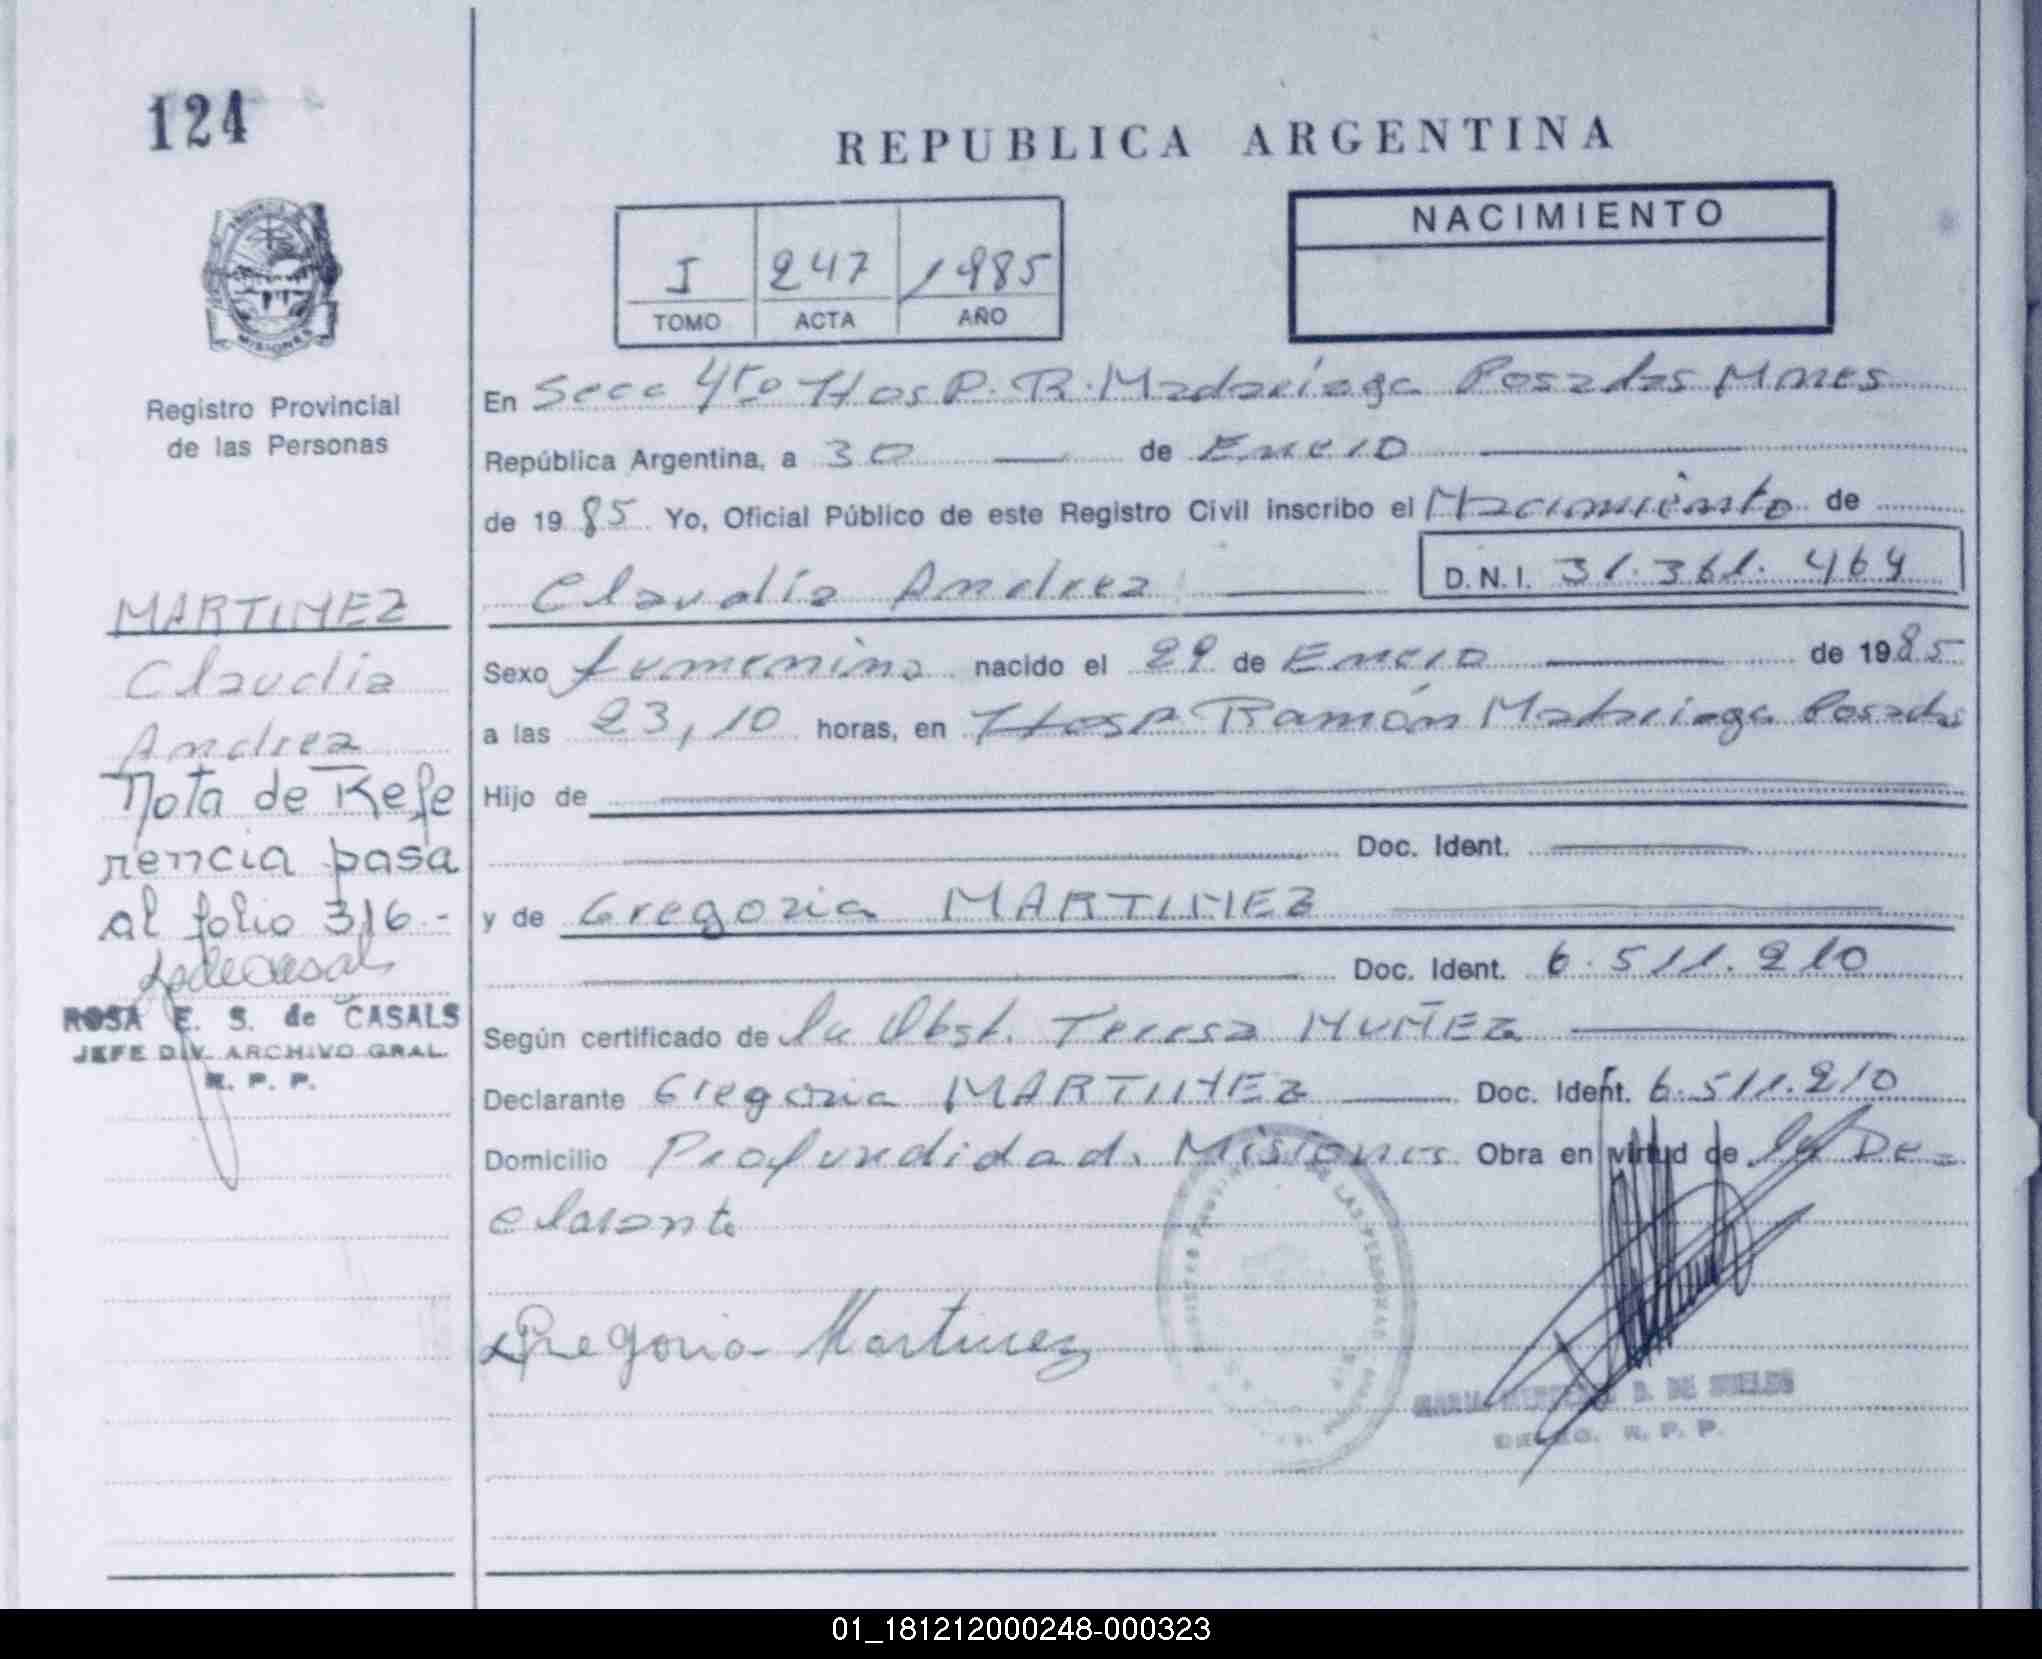 124
REPUBLICA ARGENTINA
NACIMIENTO
I 247 1985
TOMO ACTA AÑO
MISIONES
Registro Provincial
de las Personas
En Secc 4ta Hosp. R. Madariaga Posadas Mnes
República Argentina, a 30 de Enero
de 1985 Yo, Oficial Público de este Registro Civil inscribo el Nacimiento de
Claudia Andrea D.N.I. 31.361.464
Sexo femenino nacido el 29 de Enero de 1985
a las 23,10 horas, en Hosp Ramón Madariaga Posadas
Hijo de
Doc. Ident.
y de Gregoria MARTINEZ
Doc. Ident. 6.511.210
Según certificado de la Obst. Teresa NUÑEZ
Declarante Gregoria MARTINEZ Doc. Ident. 6.511.210
Domicilio Profundidad. Misiones Obra en virtud de la De-
clarante
Gregoria Martinez
DE LAS PERSONAS
B. DE
R. P. P.
MARTINEZ
Claudia
Andrea
Nota de Refe
rencia pasa
al folio 316.-
ROSA E. S. de CASALS
JEFE DIV. ARCHIVO GRAL.
R. P. P.
01_181212000248-000323